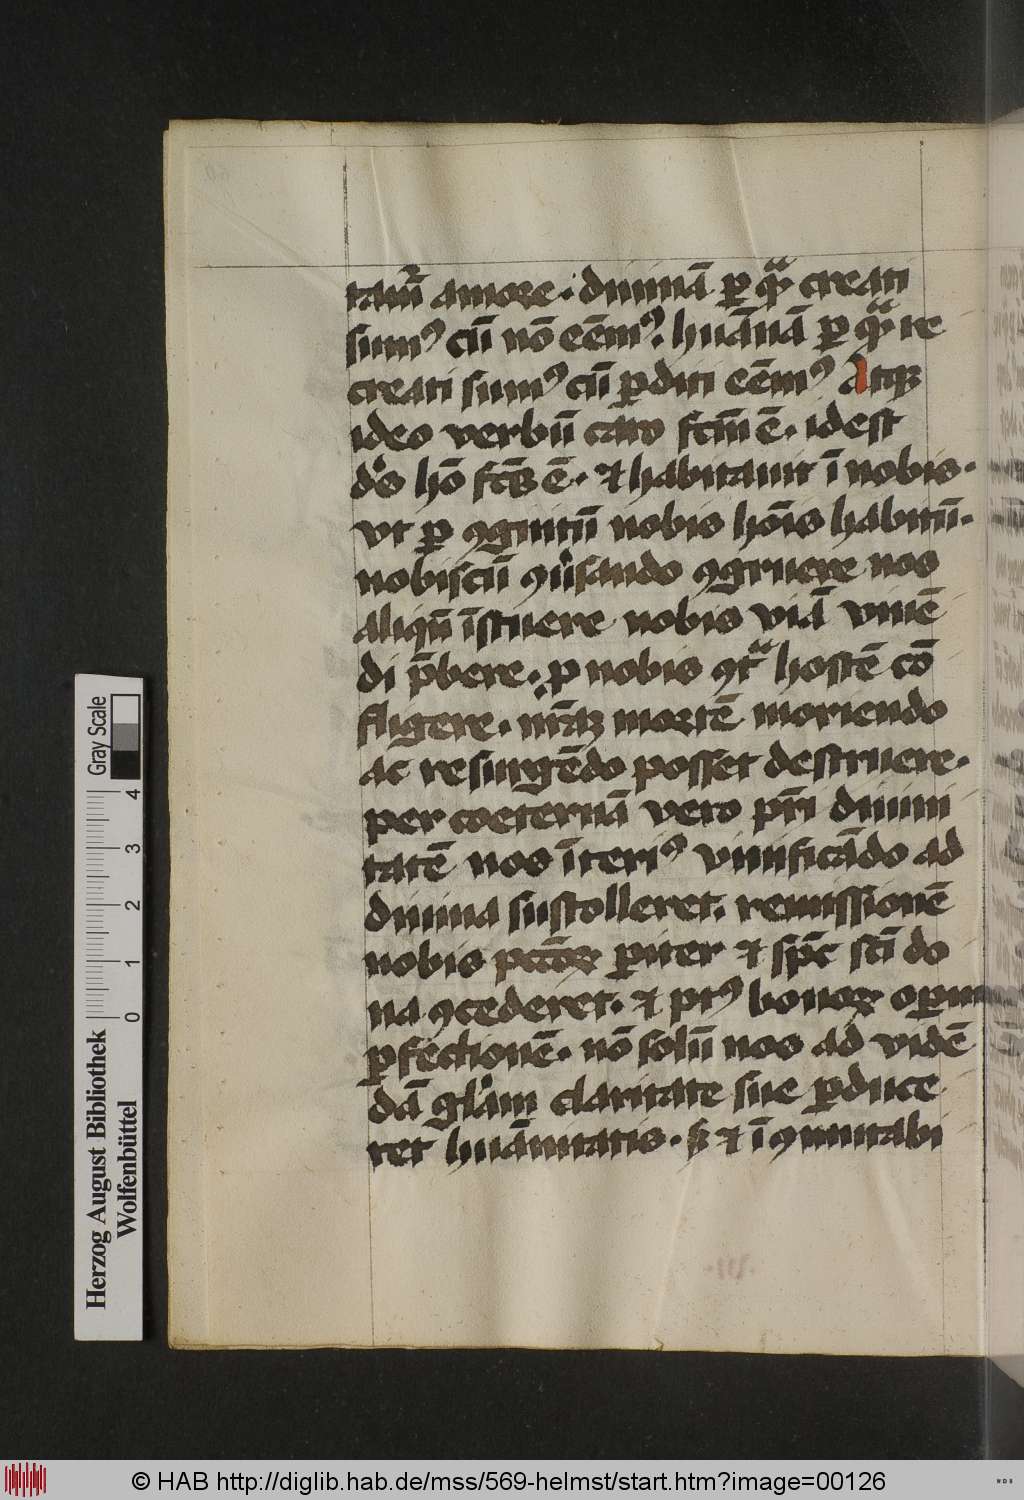 tam̄ amore. diuinā ꝑ quā creati
sumꝰ cū nō eēmꝰ. huānā ꝑ quā re
creati sumꝰ cū ꝑditi eēmꝰ Atqꝫ
ideo verbū caro fcm̄ ē. idest
ds̄ hō fcūs ē. ⁊ habitauit ī nobis.
vt ꝑ ꝯgnitū nobis hōis habitū.
nobiscū ꝯūsando ꝯgruere nos
aliqn̄ īstruere nobis viā viuē
di p̄bere. ꝓ nobis ꝯtᵃ hostē cō
fligere. nr̄aꝫ mortē moriendo
ac resurgēdo posset destruere.
per coeternā vero pr̄i diuini
tatē nos īteriꝰ viuificādo ad
diuina sustolleret. remissionē
nobis pcc̄oꝝ ꝑiter ⁊ spc̄ sc̄i do
na ꝯcederet. ⁊ ptꝰ bonoꝝ
ꝑfectionē. nō solū nos ad vidē
dā gl̄am claritate sue ꝑduce
ret huānitatis. sꝫ ⁊ ī ꝯmutabi
Gray Scale
4
3
2
1
0
Herzog August Bibliothek
Wolfenbüttel
© HAB http://diglib.hab.de/mss/569-helmst/start.htm?image=00126